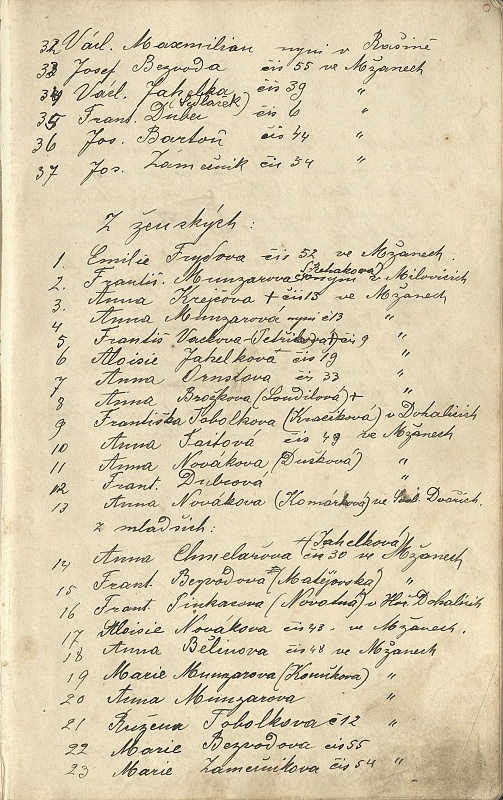 32 Václ. Maxmilian nyni v Rašíně
33 Josef Bezvoda čis 55 ve Mžanech
34 Václ. Jahelka čis 39 "
35 Frant. Duben (Sedlářek) čis 6 "
36 Jos. Bartoň čis 44 "
37 Jos. Zámečník čis 54 "
Z ženských:
1. Emilie Frydova čis 52 ve Mžanech.
2. Františ. Munzarova (Řehakova) nyni v Milovicích
3. Anna Krejčova + čis 15 ve Mžanech
4 Anna Munzarová nyni č 13 "
5 Františ Vackova (Petříkova) + čis 9 "
6 Aloisie Jahelková čis 19 "
7 Anna Ornstova čis 33 "
8 Anna Brožkova (Loudilová) + "
9 Františka Tobolkova (Kračíková) v Dohalicích
10 Anna Faitová čis 49 ve Mžanech
11 Anna Novákova (Dušková) "
12 Frant. Dubcova "
13 Anna Novákova (Komárková) ve Dvořích.
z mladších:
14 Anna Chmelařova + (Jahelková) čis 30 ve Mžanech
15 Frant. Bezvodová (Matějovská) "
16 Frant. Pinkasova (Novotná) v Hoř. Dohalicích
17 Aloisie Novákova čis 43. ve Mžanech.
18 Anna Bělinova čis 48 ve Mžanech
19 Marie Munzarova (Koníkova) "
20 Anna Munzarova "
21 Ružena Tobolkova č 12 "
22 Marie Bezvodova čis 55
23 Marie Zámečníkova čis 54 "